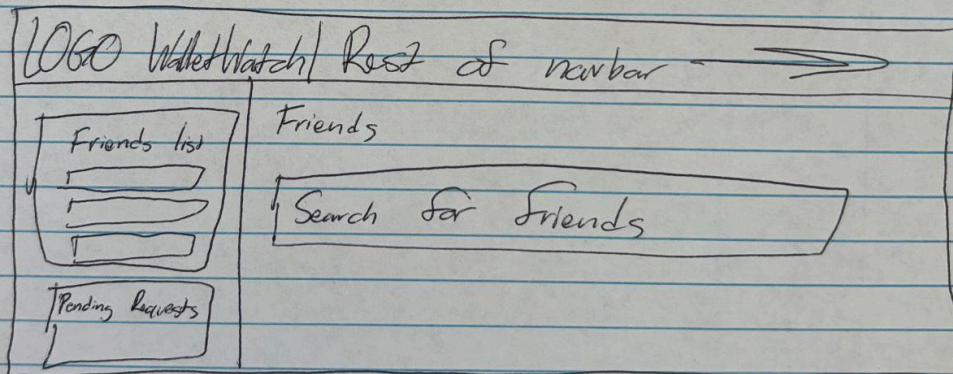 LOGO WalletWatch | Rest of navbar
Friends list
Pending Requests
Friends
Search for friends